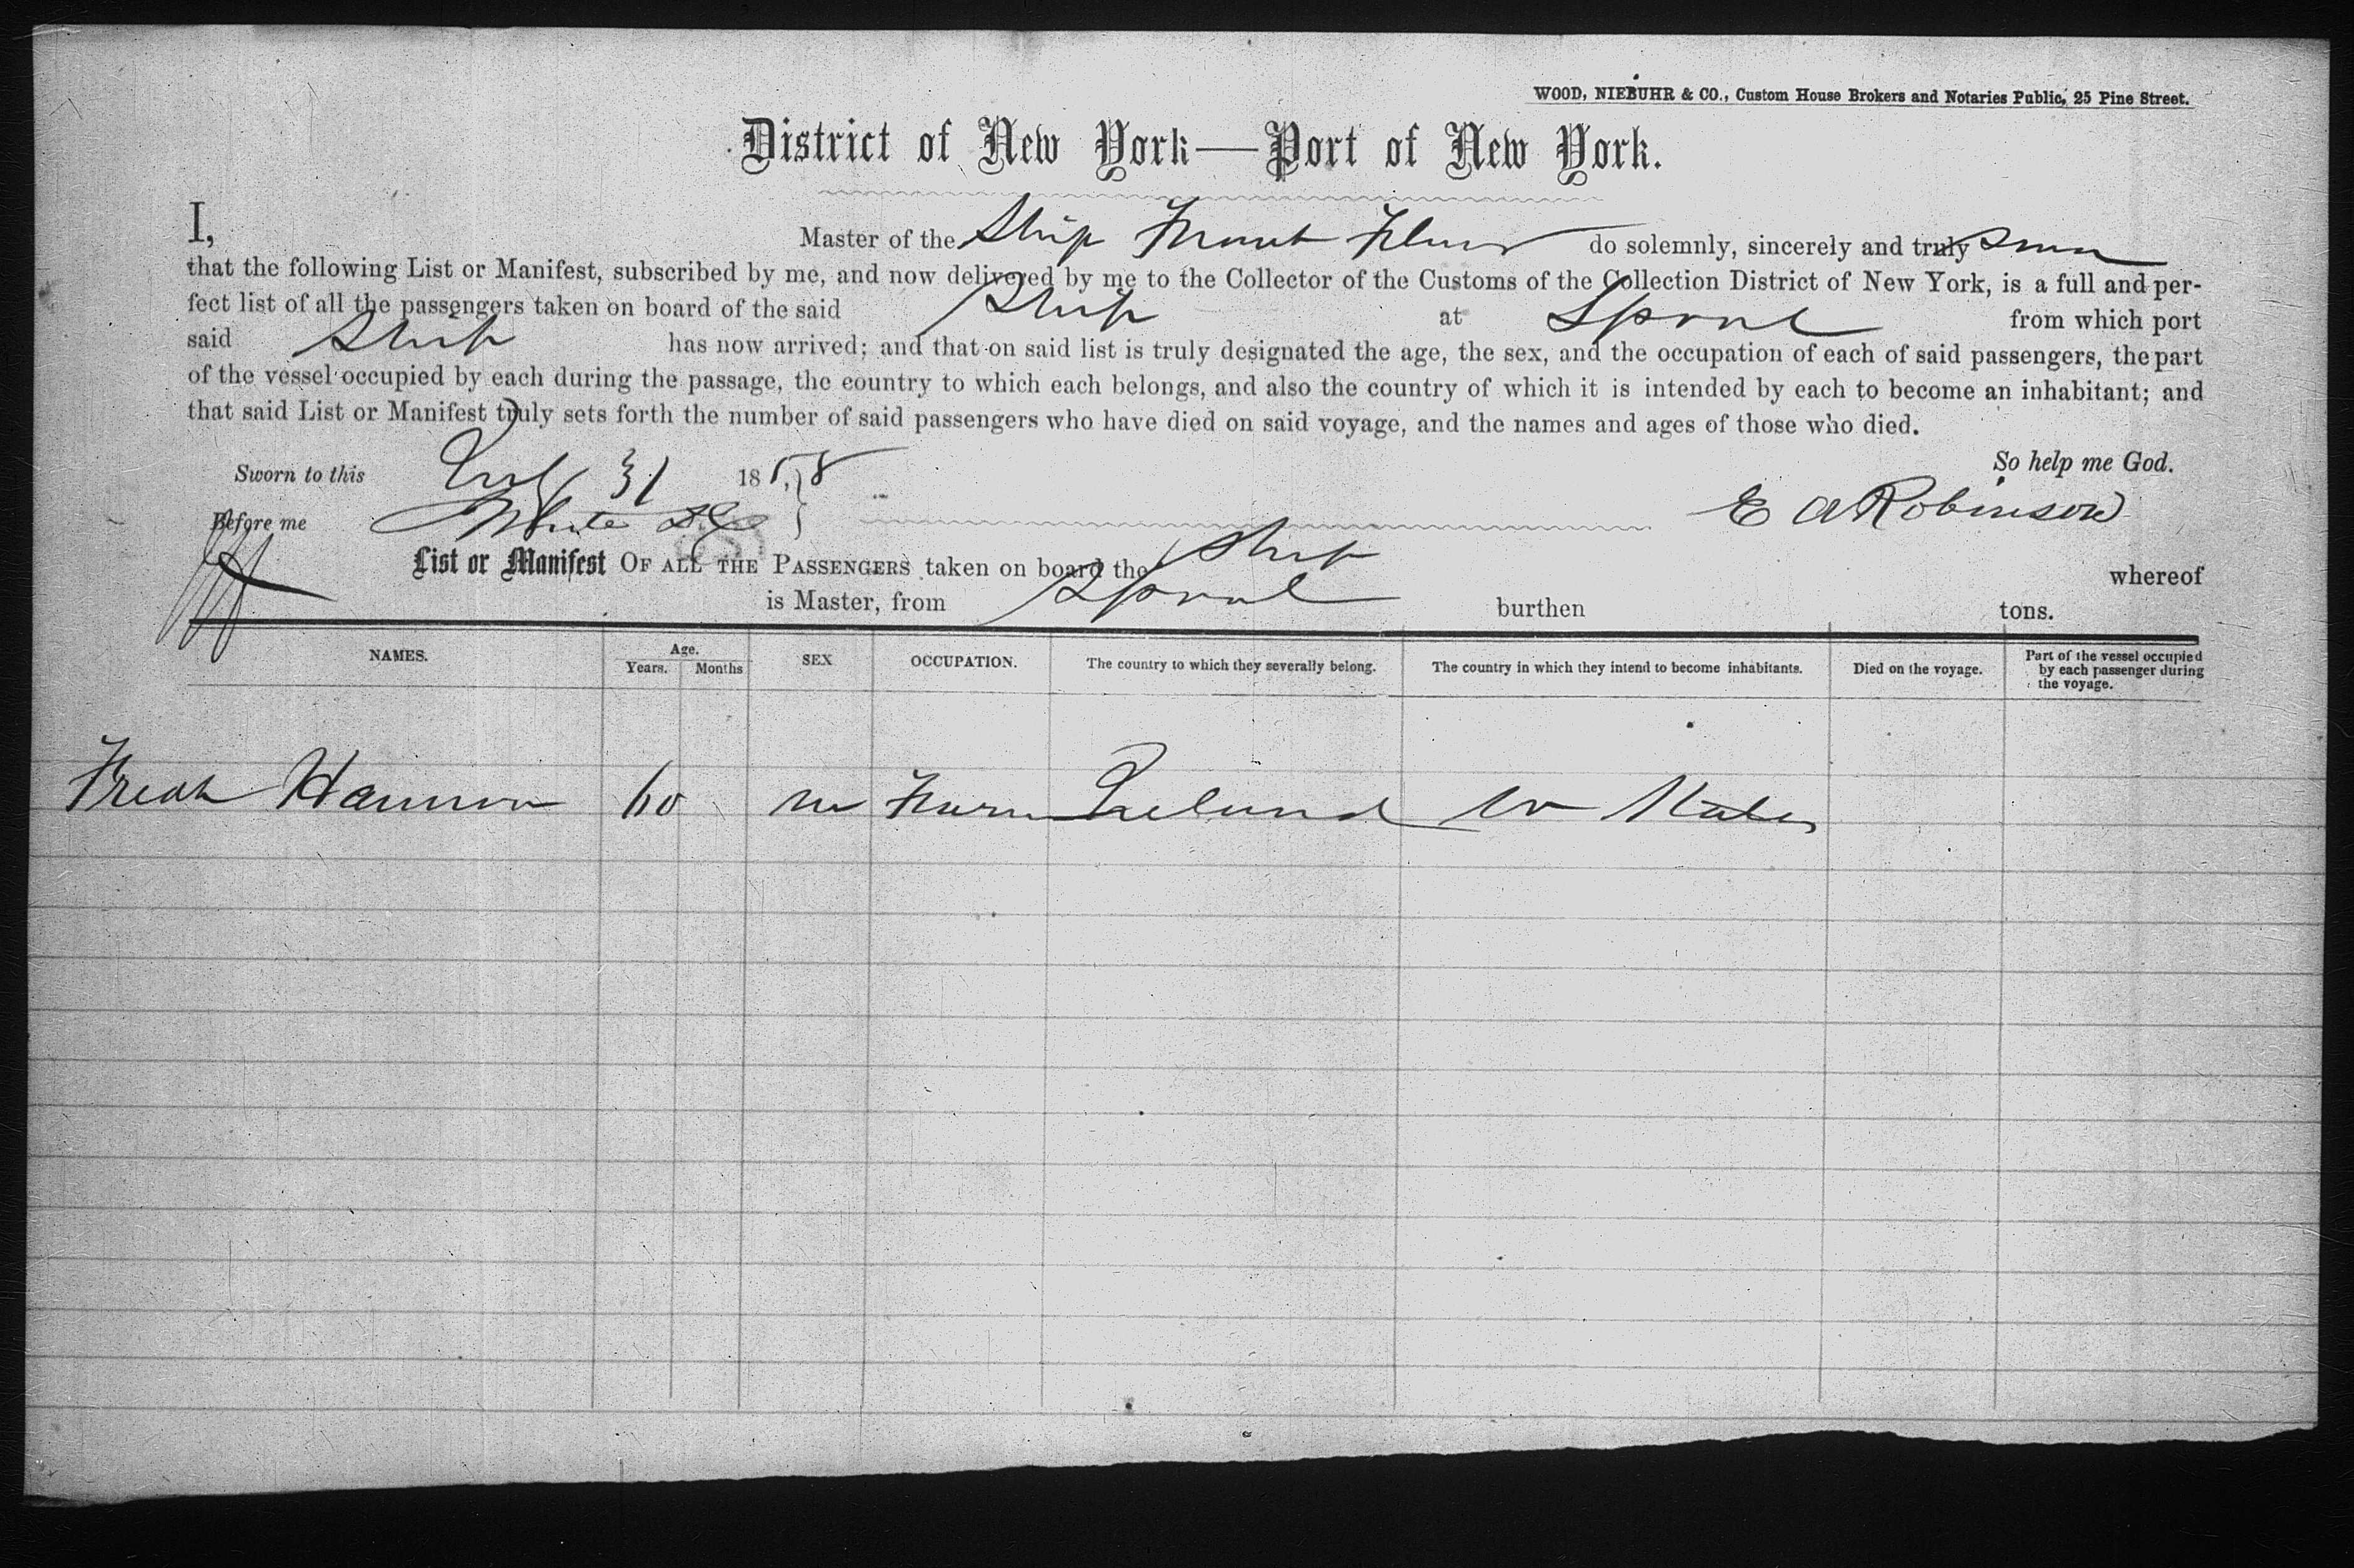 WOOD, NIEBUHR & CO., Custom House Brokers and Notaries Public, 25 Pine Street.
District of New York—Port of New York.
I, Master of the Ship do solemnly, sincerely and truly
that the following List or Manifest, subscribed by me, and now delivered by me to the Collector of the Customs of the Collection District of New York, is a full and per-
fect list of all the passengers taken on board of the said Ship at Lpool from which port
said Ship has now arrived; and that on said list is truly designated the age, the sex, and the occupation of each of said passengers, the part
of the vessel occupied by each during the passage, the country to which each belongs, and also the country of which it is intended by each to become an inhabitant; and
that said List or Manifest truly sets forth the number of said passengers who have died on said voyage, and the names and ages of those who died.
So help me God.
Sworn to this July 31 1858
Before me E A Robinson
List or Manifest OF ALL THE PASSENGERS taken on board the Ship whereof
is Master, from Lpool burthen tons.
NAMES. Age. Years. Months SEX OCCUPATION. The country to which they severally belong. The country in which they intend to become inhabitants. Died on the voyage. Part of the vessel occupied by each passenger during the voyage.
60 m Ireland U States